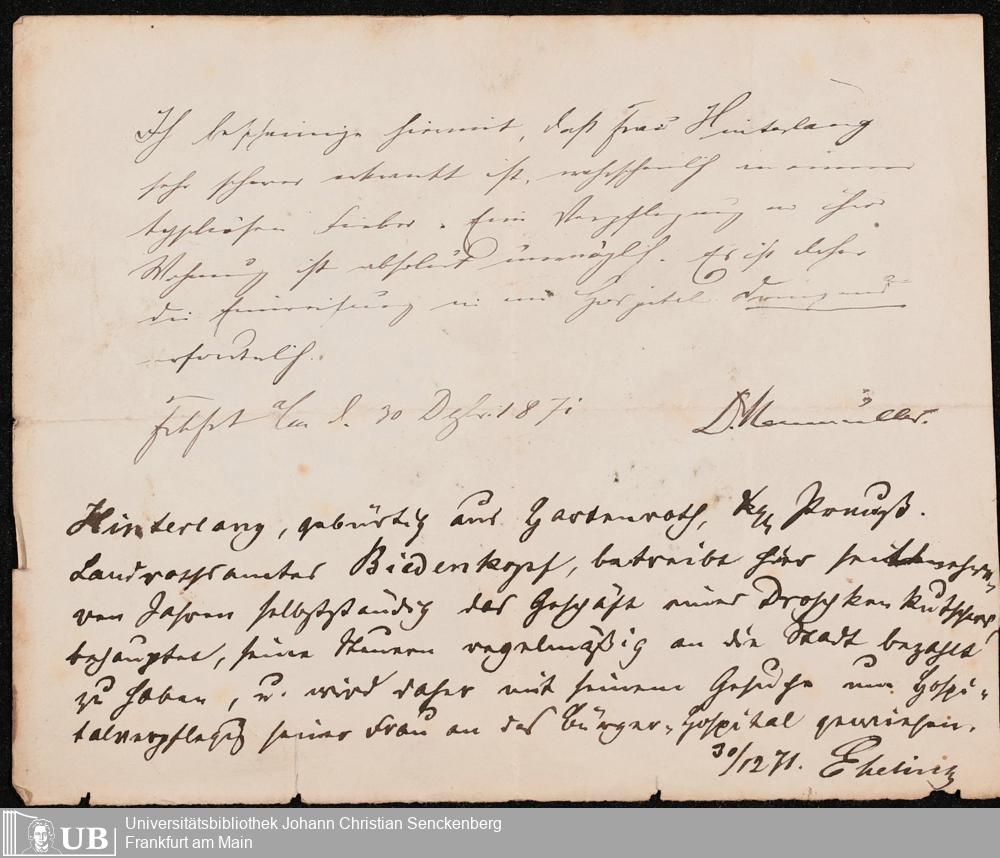 Ich bescheinige hiermit, daß Frau Hinterlang
sehr schwer erkrankt ist, wahrscheinlich an einem
typhösen Fieber. Eine Verpflegung in ihrer
Wohnung ist absolut unmöglich. Es ist daher
die Einweisung in ein Hospital dringend
erforderlich.
Frkfrt a/m d. 30 Dezbr. 1871
Hinterlang, gebürtig aus Gartenroth, Kgl. Preuß.
Landrathsamtes Biedenkopf, betreibt hier seit mehre-
ren Jahren selbstständig das Geschäft eines Droschkenkutschers,
behauptet, seine Steuern regelmäßig an die Stadt bezahlt
zu haben, u. wird daher mit seinem Gesuche um Hospi-
talverpflegg seiner Frau an das Bürger-Hospital gewiesen.
30/12 71.
UB
Universitätsbibliothek Johann Christian Senckenberg
Frankfurt am Main